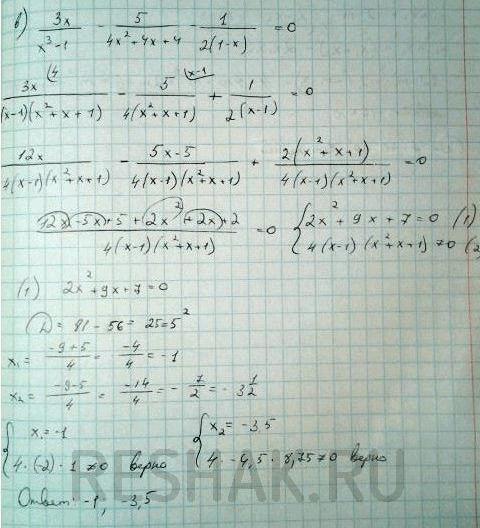 в) 3x/(x³-1) - 5/(4x²+4x+4) - 1/(2(1-x)) = 0
3x/((x-1)(x²+x+1)) (4 - 5/(4(x²+x+1)) (x-1 + 1/(2(x-1)) = 0
12x/(4(x-1)(x²+x+1)) - (5x-5)/(4(x-1)(x²+x+1)) + 2(x²+x+1)/(4(x-1)(x²+x+1)) = 0
(12x-5x+5+2x²+2x+2)/(4(x-1)(x²+x+1)) = 0 { 2x²+9x+7=0 (1)
4(x-1)(x²+x+1) ≠0 (2)
(1) 2x²+9x+7=0
D = 81-56= 25=5²
x₁= (-9+5)/4 = -4/4 = -1
x₂= (-9-5)/4 = -14/4 = -7/2 = -3 1/2
{ x₁=-1 { x₂= -3,5
4·(-2)·1 ≠0 верно 4·-4,5·8,75≠0 верно
Ответ: -1, -3,5
RESHAK.RU